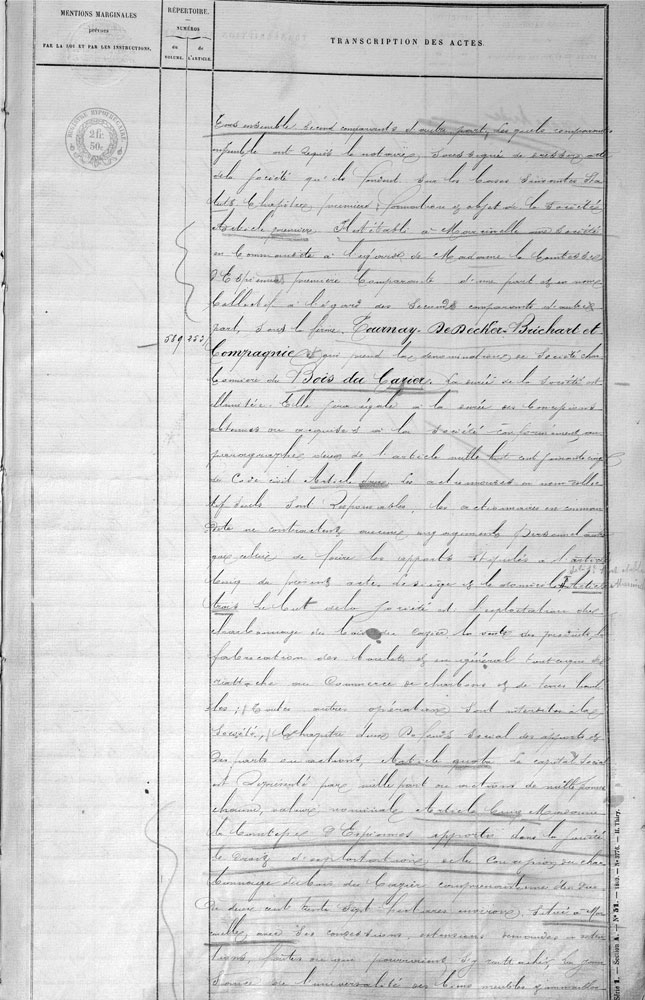 MENTIONS MARGINALES
prévues
PAR LA LOI ET PAR LES INSTRUCTIONS.
RÉPERTOIRE.
NUMÉROS
du VOLUME.
de L'ARTICLE.
TRANSCRIPTION DES ACTES.
2 fr. 50c
Tous ensemble second comparants d'autre part, les quels comparants
ensemble ont requis le notaire soussigné de dresser acte
de la Société qu'ils font sur les bases suivantes Sta
tuts Chapitre premier; formation & objet de la Société
Article premier Il est établi à Marcinelle une Société
en Commandite à l'égard de Madame la Comtesse
D'Espiennes première Comparante d'une part et en nom
Collectif à l'égard des Seconds comparants d'autre
part, sous la firme, Tournay-DeDecker-Brichart et
589
Compagnie & qui prend la dénomination de Société char
bonnière du Bois du Cazier. La durée de la Société est
illimitée. Elle sera égale à la durée des Concessions
obtenues ou acquises à la Société conformément au
paragraphe de l'article mille huit cent soixante cinq
du Code civil Article deux. Les actionnaires en nom collec
tif seuls sont Responsables, les actionnaires en comman
dite ne contractent aucun engagement personnel autre
que celui de faire les apports stipulés à l'article
cinq du présent acte. Le siège & le domicile Article
trois Le but de la Société est l'exploitation du
charbonnage du bois du Cazier la vente des produits, la
fabrication des & en général tout ce qui se
rattache au Commerce de charbons & de terres houil
les, Toutes autres opérations sont interdites à la
Société, Chapitre deux Du fonds Social des apports &
Des parts ou actions, Article quatre Le capital Social
est Représenté par mille parts ou actions de mille francs
chacune, valeur nominale Article Cinq Madame
la Comtesse D'Espiennes apporte dans la Société
le Droit d'exploitation de la Concession du char
bonnage du bois du Cazier comprenant une étendue
de deux cent trente sept hectares environ, située à Mar
cinelle, avec les concessions, extensions demandes
faites ou que pourraient s'y rattacher, la jouis
sance de l'universalité des biens meubles & immeubles
Série I. — Section A. — Nº 51. — 1869. — Nº 3778. — H. Thiry.